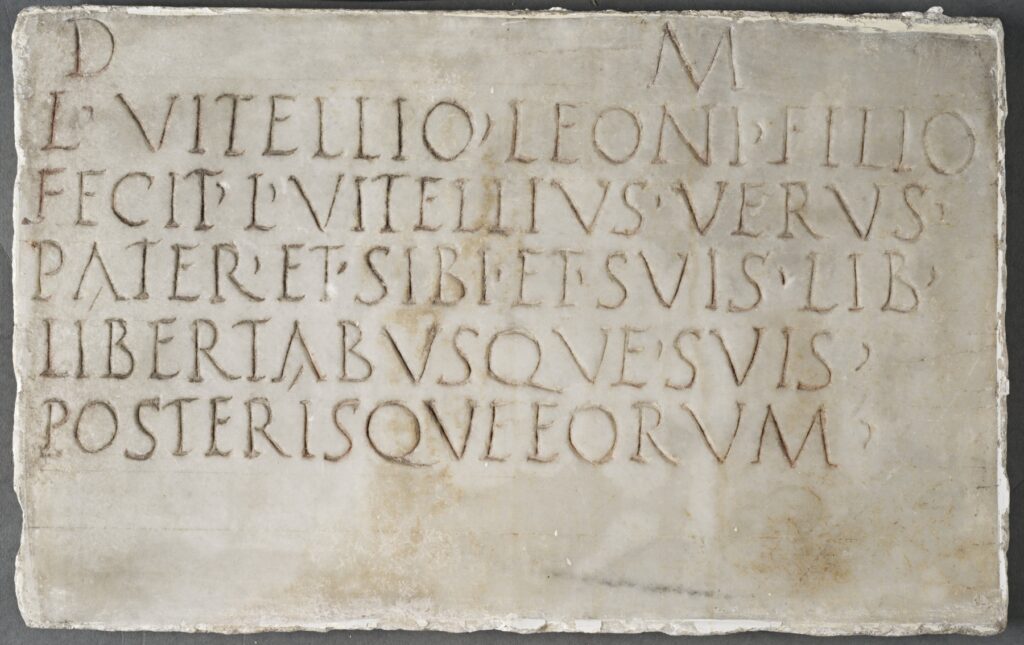 D M
L VITELLIO LEONI FILIO
FECIT L VITELLIVS VERVS
PATER ET SIBI ET SVIS LIB
LIBERTABVSQVE SVIS
POSTERISQVE EORVM